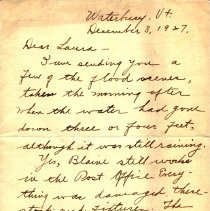 Waterbury, Vt.
December 3, 1927.
Dear Laura -
I am sending you a
few of the flood scenes,
taken the morning after
when the water had gone
down three or four feet,
although it was still raining.
Yes, Blaine still works
in the Post Office. Every-
thing was damaged there -
stock and fixtures. The